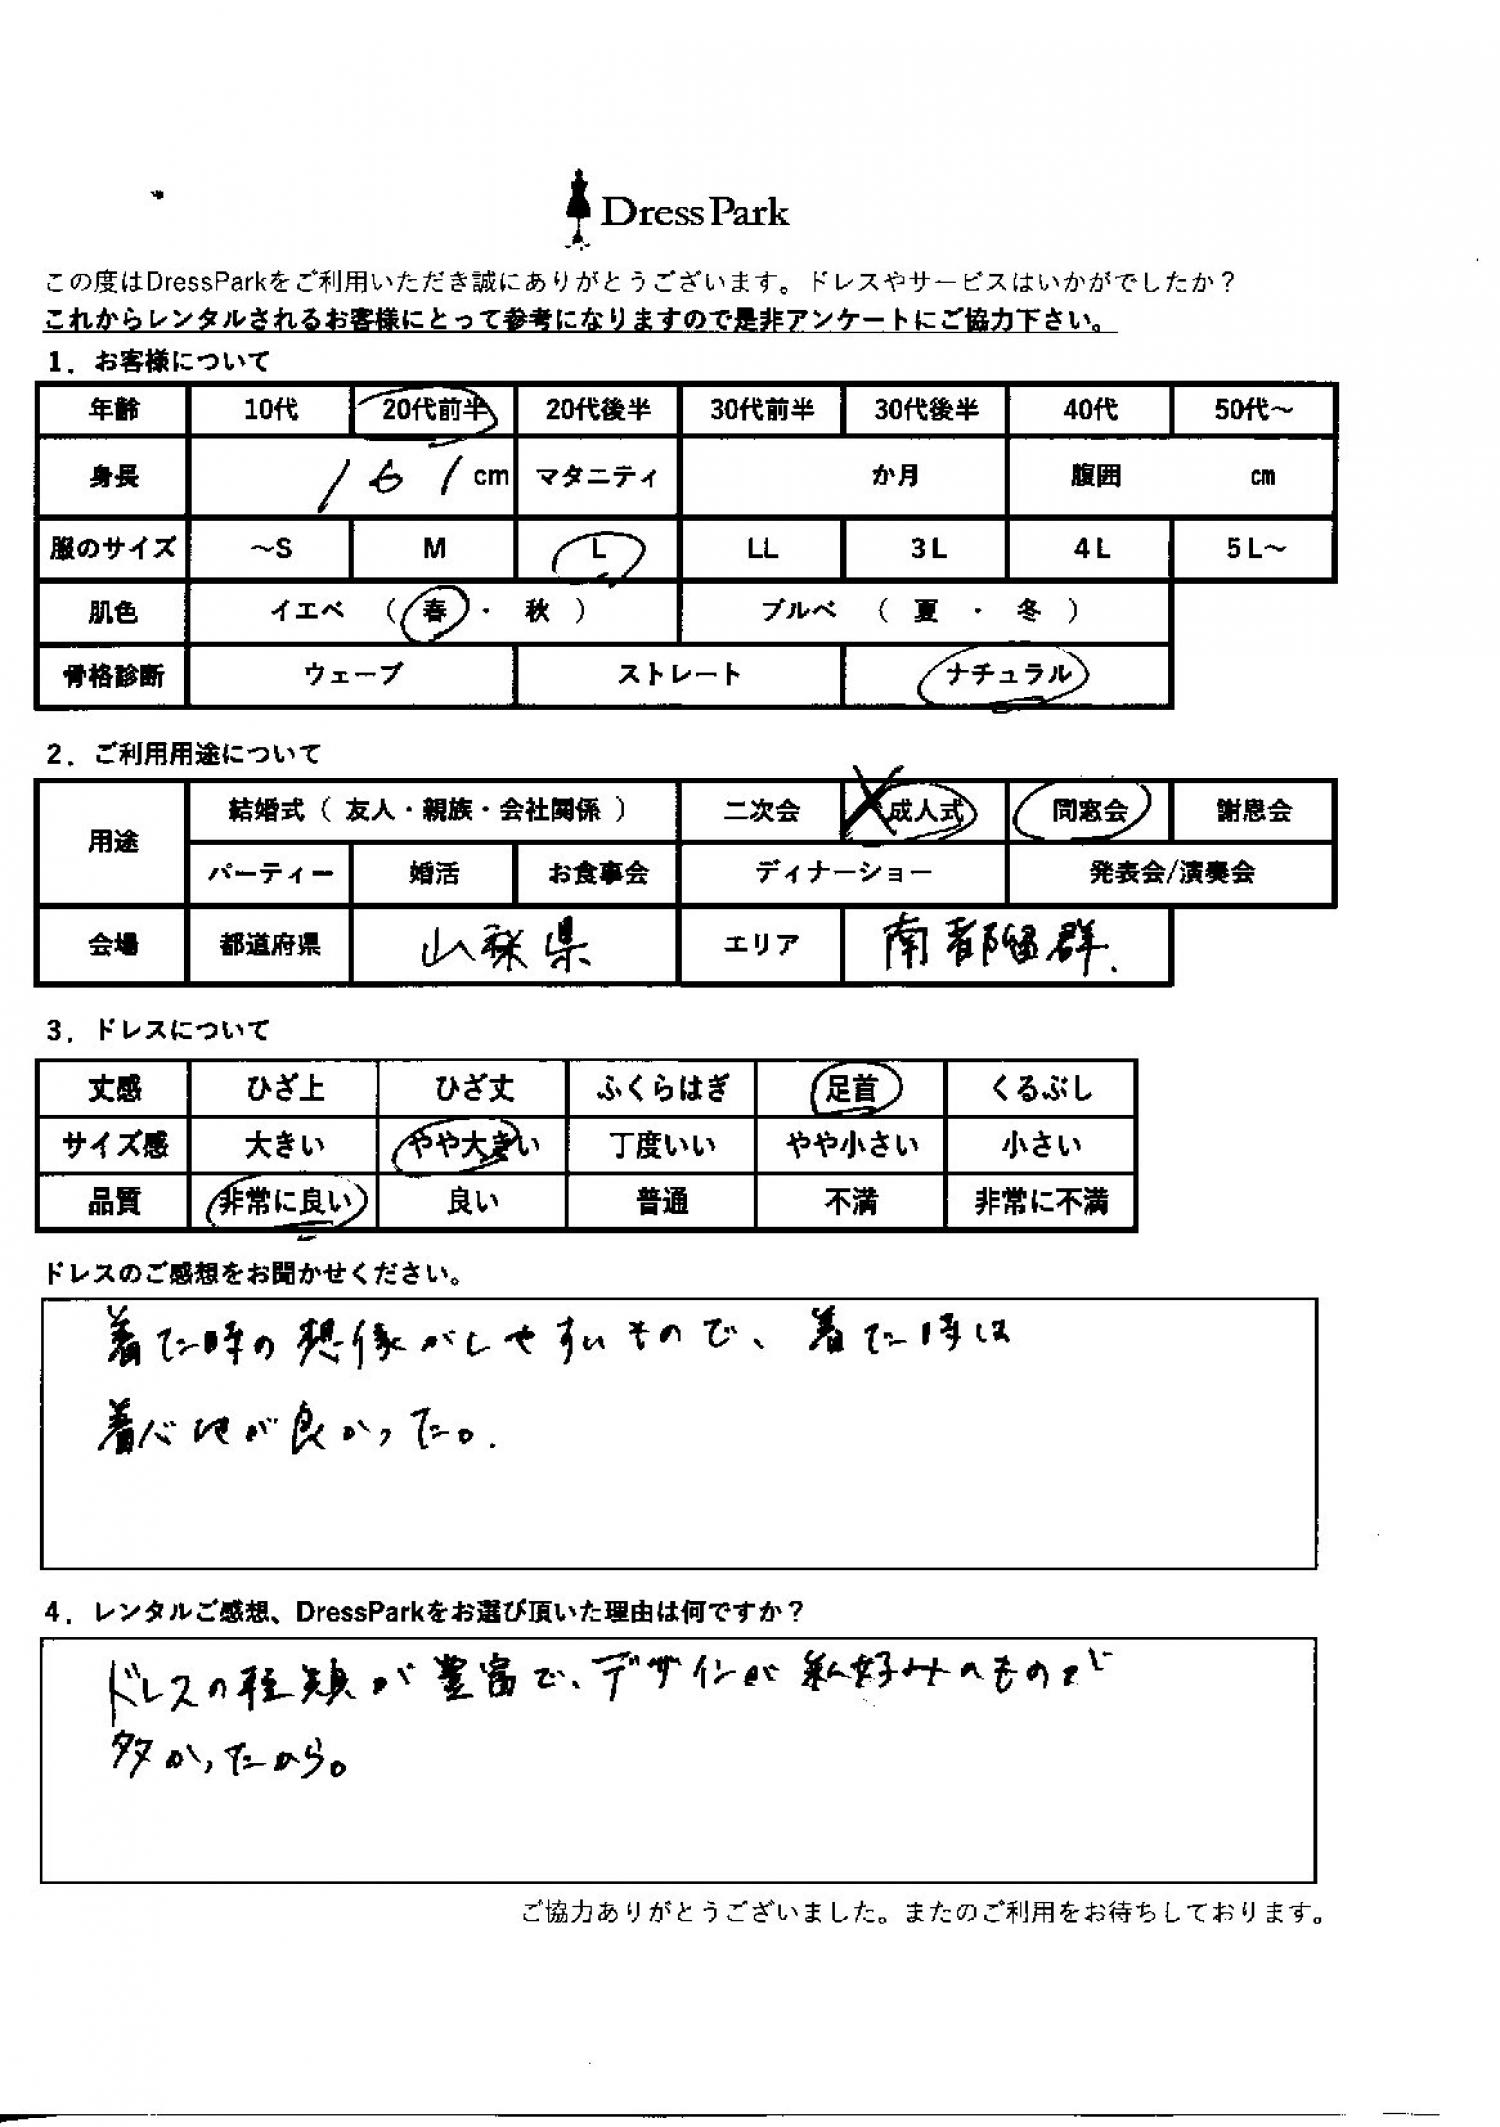 Dress Park
この度はDressParkをご利用いただき誠にありがとうございます。ドレスやサービスはいかがでしたか？
これからレンタルされるお客様にとって参考になりますので是非アンケートにご協力下さい。
1．お客様について
年齢 10代 20代前半 20代後半 30代前半 30代後半 40代 50代～
身長 161 cm マタニティ か月 腹囲 cm
服のサイズ ～S M L LL 3L 4L 5L～
肌色 イエベ （ 春 ・ 秋 ） ブルベ （ 夏 ・ 冬 ）
骨格診断 ウェーブ ストレート ナチュラル
2．ご利用用途について
用途 結婚式（ 友人・親族・会社関係 ） 二次会 成人式 同窓会 謝恩会
パーティー 婚活 お食事会 ディナーショー 発表会/演奏会
会場 都道府県 山梨県 エリア 南都留群.
3．ドレスについて
丈感 ひざ上 ひざ丈 ふくらはぎ 足首 くるぶし
サイズ感 大きい やや大きい 丁度いい やや小さい 小さい
品質 非常に良い 良い 普通 不満 非常に不満
ドレスのご感想をお聞かせください。
着た時の想像がしやすいもので、着た時は
着心地が良かった。
4．レンタルご感想、DressParkをお選び頂いた理由は何ですか？
ドレスの種類が豊富で、デザインが私好みのものが
多かったから。
ご協力ありがとうございました。またのご利用をお待ちしております。